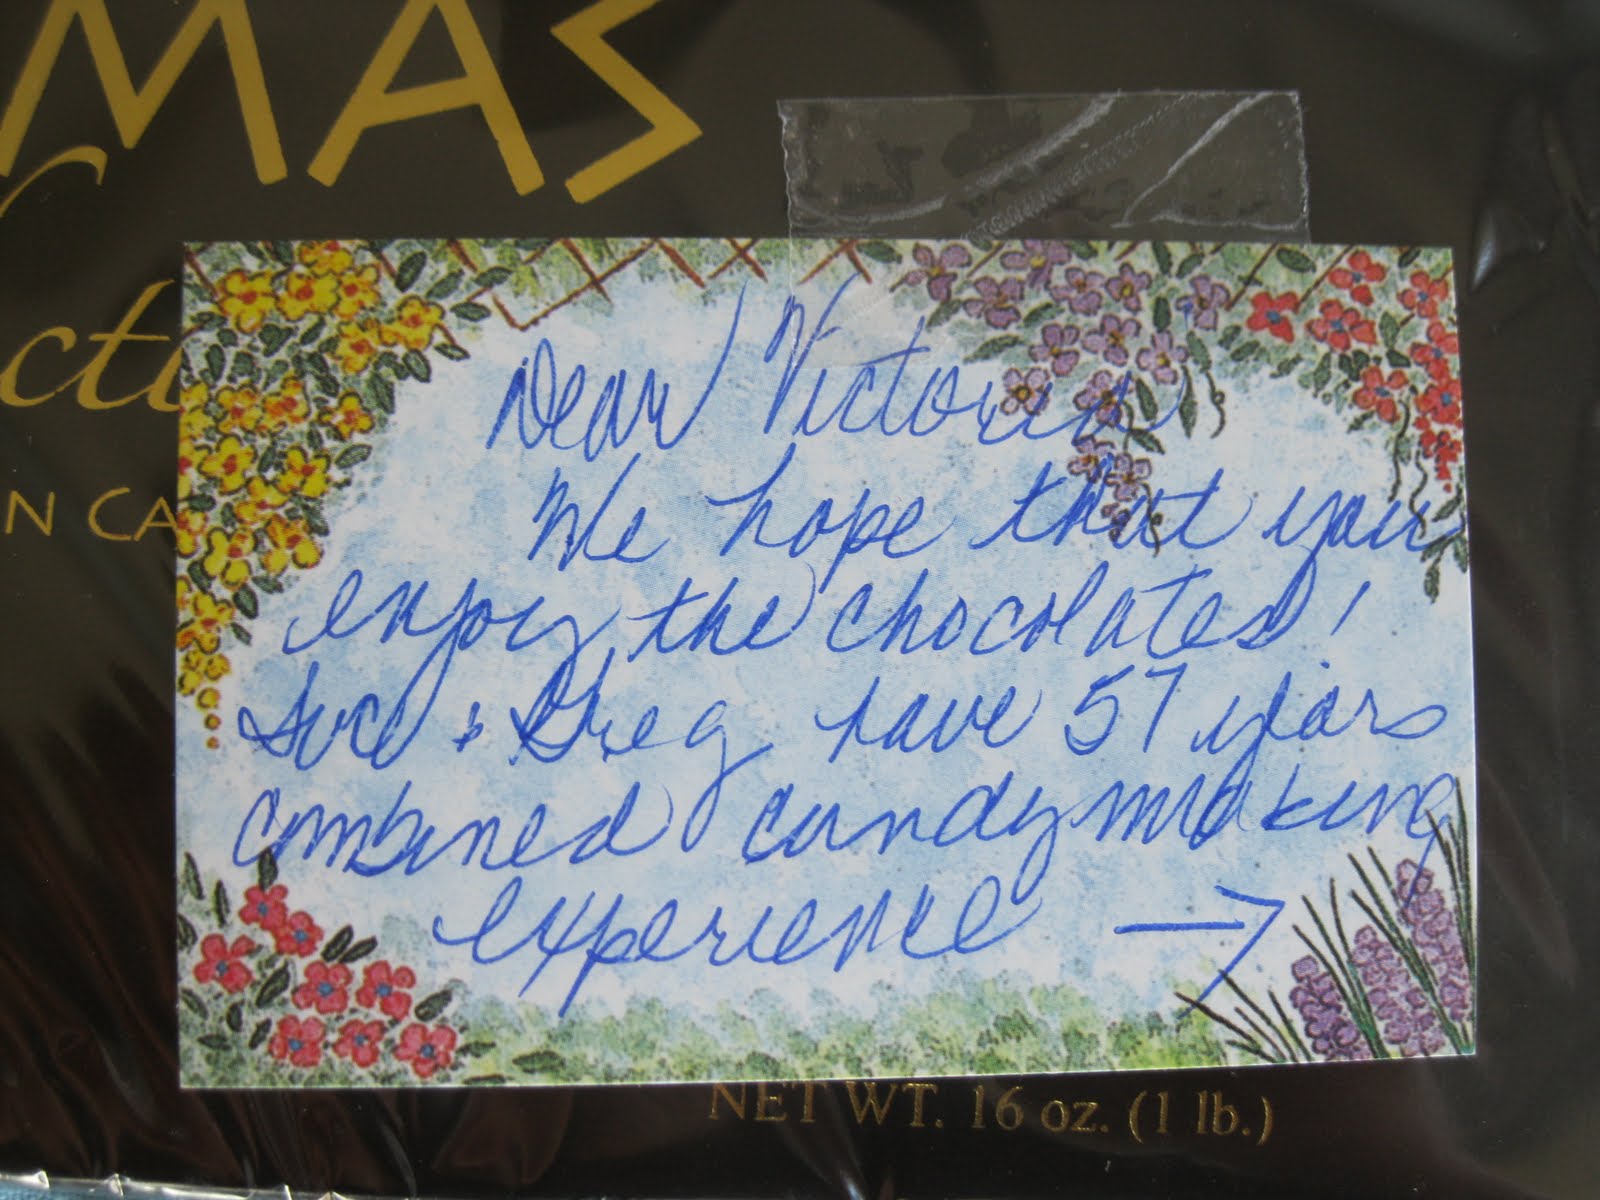 MAS
cti
N CA
Dear Victoria
We hope that you
enjoy the chocolates!
Sue & Greg have 57 years
combined candymaking
experience →
NET WT. 16 oz. (1 lb.)